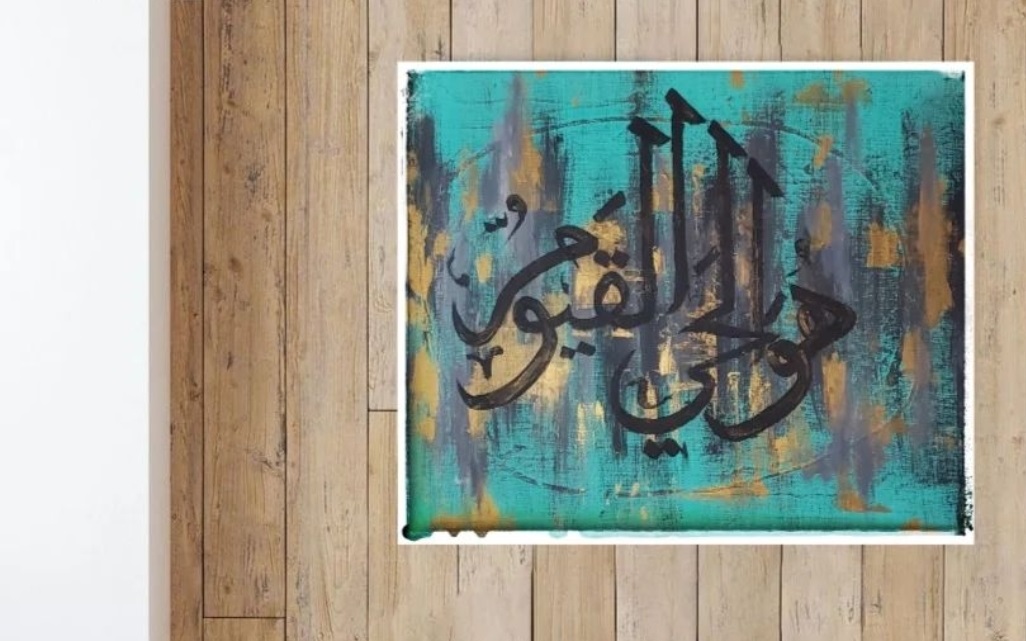 هو الحي القيوم